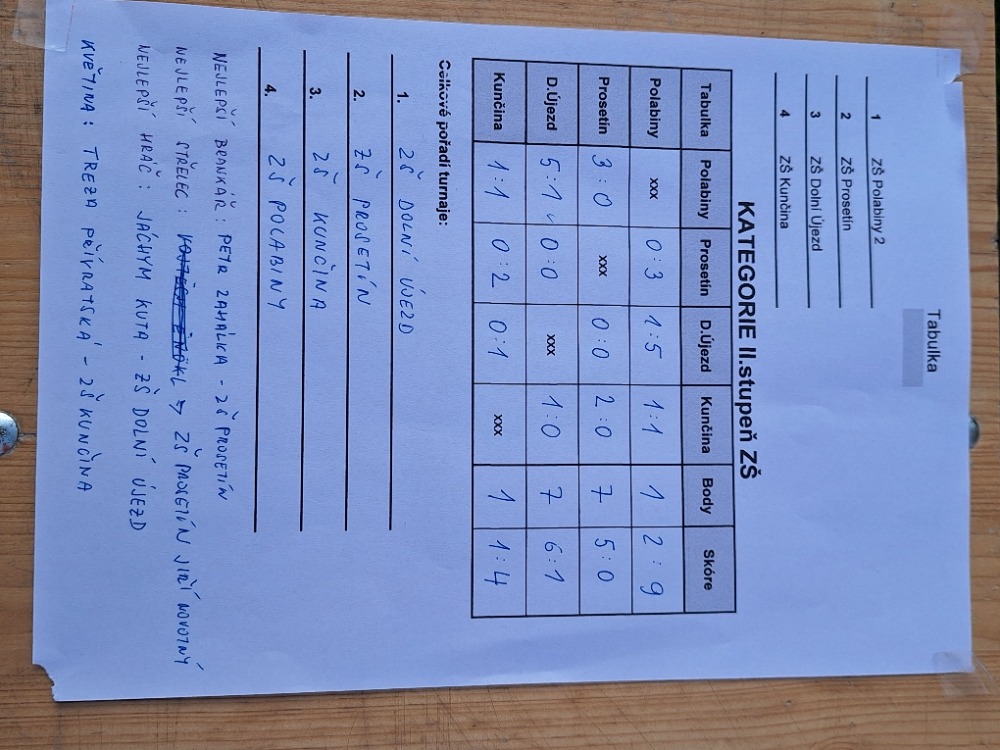 Tabulka
1 ZŠ Polabiny 2
2 ZŠ Prosetín
3 ZŠ Dolní Újezd
4 ZŠ Kunčina
KATEGORIE II.stupeň ZŠ
Tabulka Polabiny Prosetín D.Újezd Kunčina Body Skóre
Polabiny xxx 0:3 1:5 1:1 1 2:9
Prosetín 3:0 xxx 0:0 2:0 7 5:0
D.Újezd 5:1 0:0 xxx 1:0 7 6:1
Kunčina 1:1 0:2 0:1 xxx 1 1:4
Celkové pořadí turnaje:
1. ZŠ DOLNÍ ÚJEZD
2. ZŠ PROSETÍN
3. ZŠ KUNČINA
4. ZŠ POLABINY
NEJLEPŠÍ BRANKÁŘ: PETR ZAHÁLKA - ZŠ PROSETÍN
NEJLEPŠÍ STŘELEC: → ZŠ PROSETÍN JIŘÍ NOVOTNÝ
NEJLEPŠÍ HRÁČ: JÁCHYM KUTA - ZŠ DOLNÍ ÚJEZD
KVĚTINA: TREZA PŘÍVRATSKÁ - ZŠ KUNČINA